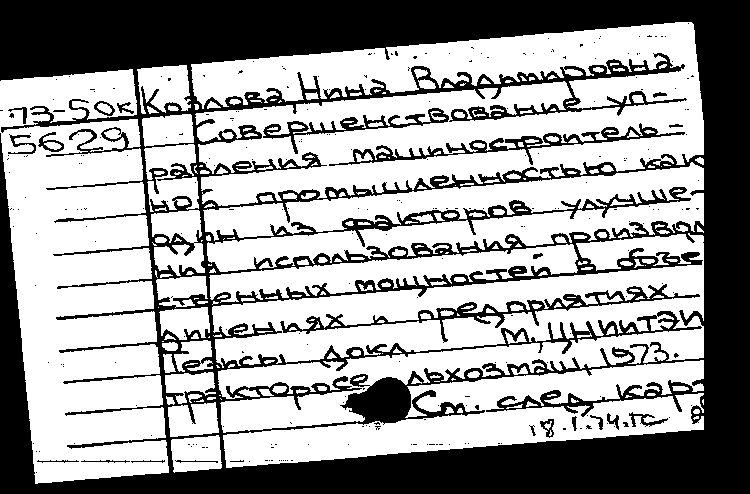 73-50к Козлова, Нина Владимировна.
5629 Совершенствование уп-
равления машиностроитель-
ной промышленностью как
один из факторов улучше-
ния использования производ
ственных мощностей в объе
динениях и предприятиях.
Тезисы докл. М., ЦНИИТЭИ
тракторосельхозмаш, 1973.
См. след. карт
18.1.74.